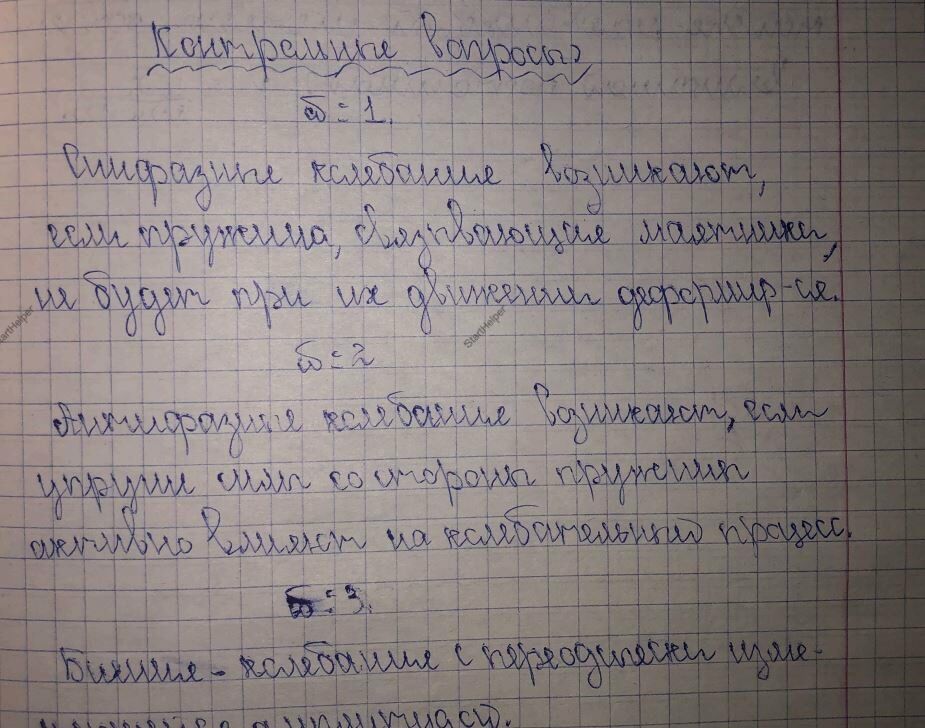 Контрольные вопросы
в: 1.
Синфазные колебания возникают,
если пружина, связывающая маятники,
не будет при их движении деформир-ся.
в: 2
Антифазные колебания возникают, если
упругие силы со стороны пружины
активно влияют на колебательный процесс.
в: 3.
Биения - колебания с переодически изме-
няющейся амплитудой.
StartHelper
StartHelper